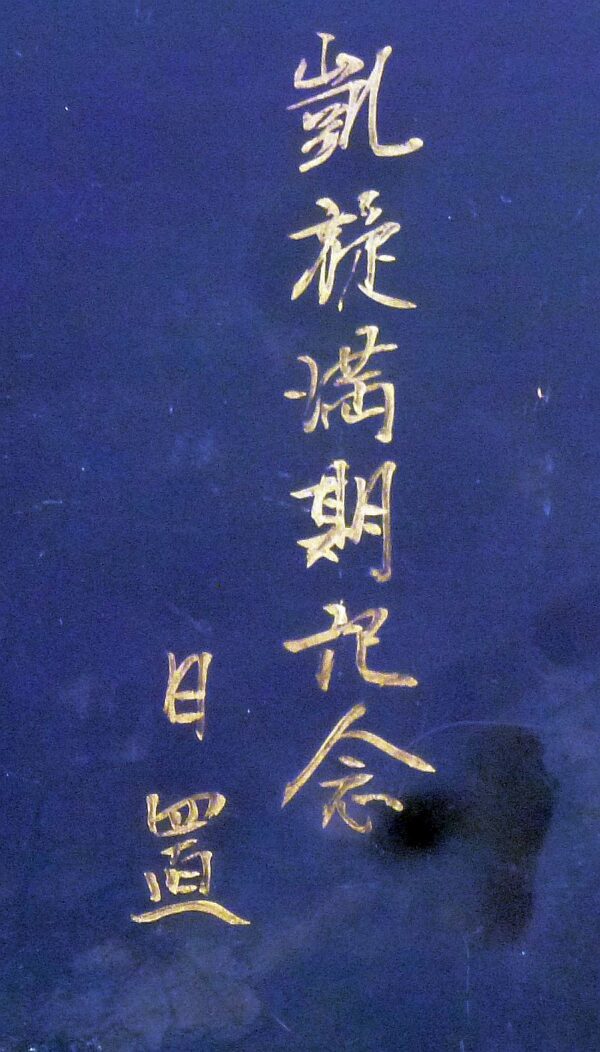 凱旋満期記念
日置